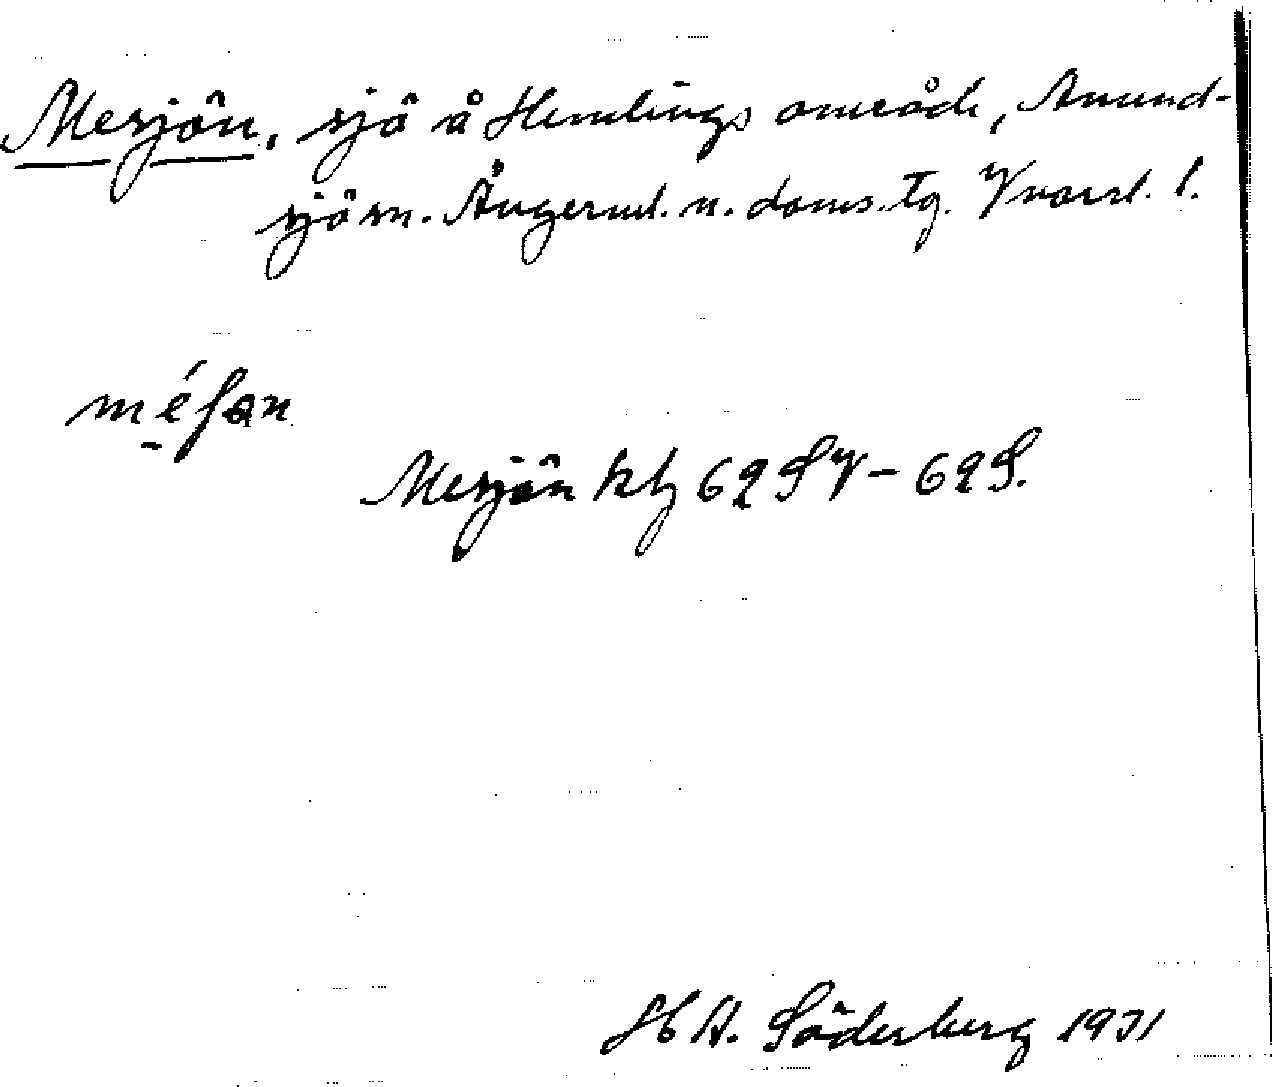 Mesjön, sjö å Hemlings område, Anund-
sjö sn. Ångerml. n. doms. tg. Vnorrl. l.
méʃɷn
Mesjön ktbl 62 SV - 62 S.
H A. Söderberg 1931